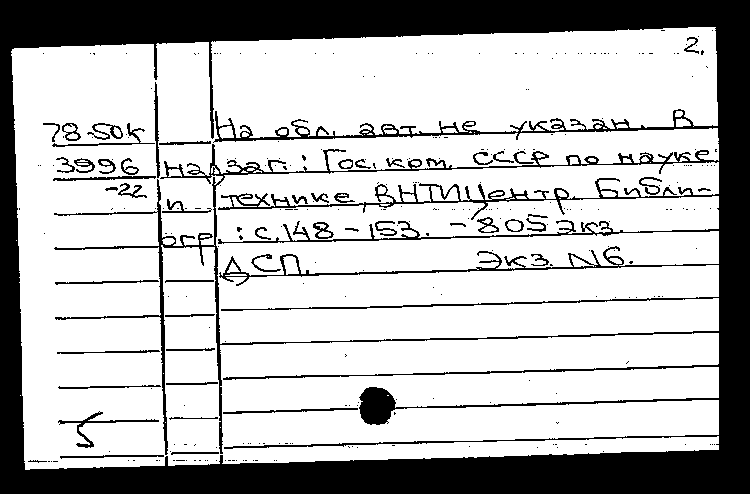 2.
78-50к На обл. авт. не указан. В
3996 надзаг.: Гос. ком. СССР по науке
-22 и технике, ВНТИЦентр. Библи-
огр.: с. 148-153. - 805 экз.
ДСП. Экз. N6.
5